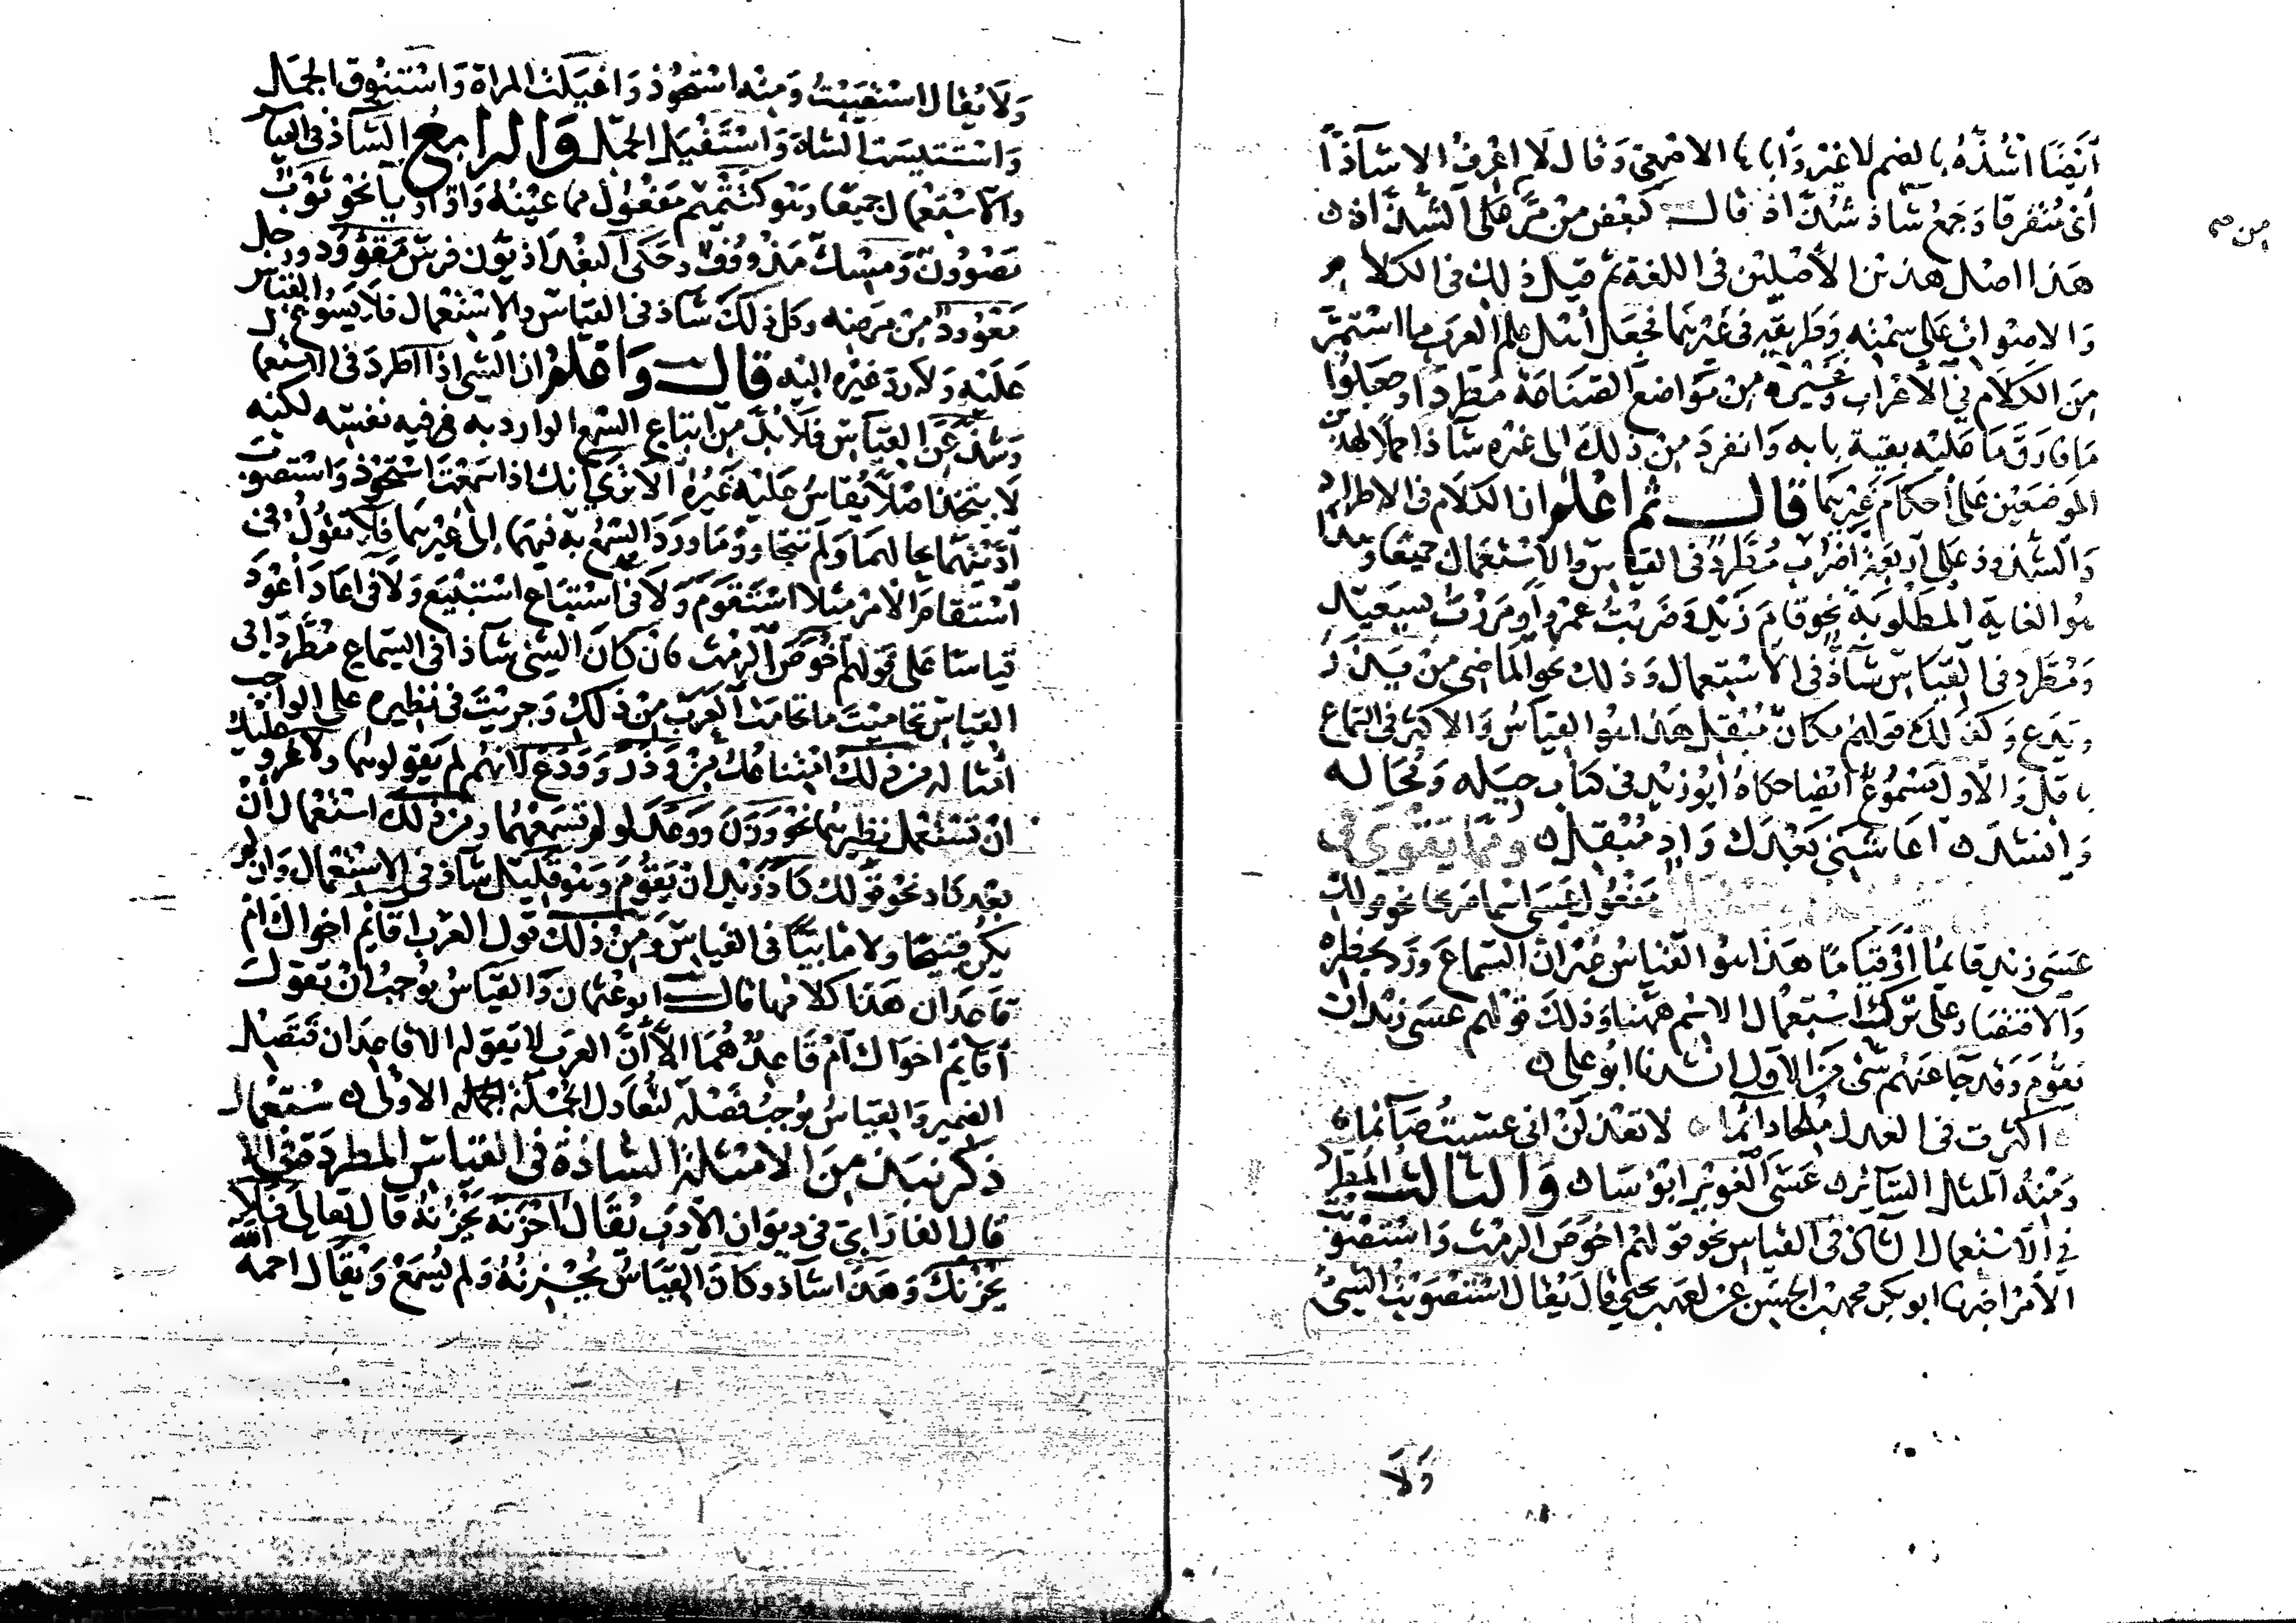 أيضا أشذه بالضم لا غير وأباها الأصمعي وقال لا أعرف إلا شاذا
أي متفرقا وجمع شاذ شذاذ قال كبعض من مر على الشذاذ
من صح
هذا أصل هذين الأصلين في اللغة ثم قيل ذلك في الكلام
والأصوات على سمته وطريقه في غيرهما فجعل أهل علم العرب ما استمر
من الكلام في الأعراب وغيره من مواضع الصناعة مطردا وجعلوا
ما فارق ما عليه بقية بابه وانفرد من ذلك إلى غيره شاذا حملا لهذين
الموضعين على أحكام غيرهما قال ثم اعلم ان الكلام في الاطراد
والشذوذ على أربعة أضرب مطرد في القياس والاستعمال جميعا وهذا
هو الغاية المطلوبة نحو قام زيد وضربت عمرا ومررت بسعيد
ومطرد في القياس شاذ في الاستعمال وذلك نحو الماضي من يذر
ويدع وكذلك قولهم مكان مبقل هذا هو القياس والأكثر في السماع
باقل والأول مسموع أيضا حكاه أبو زيد في كتاب حيله ومحاله
وأنشد أعاشني بعدك واد مبقل ومما يقوى في
مفعول عسى اسما صريحا نحو قولك
عسى زيد قايما أو قياما هذا هو القياس غير ان السماع ورد بحظره
والاقتصار على ترك استعمال الاسم ههنا وذلك قولهم عسى زيد ان
يقوم وقد جا عنهم شي من الأول أنشدنا أبو علي
أكثرت في العذل ملحا دائما لا تعذلن اني عسيت صائما
ومنه المثل السائر عسى الغوير أبؤسا والثالث المطرد
في الاستعمال الشاذ في القياس نحو قولهم أخوص الرمث واستصوبت
الأمر أخبرنا أبو بكر محمد بن الحسن عن أحمد بن يحيى قال يقال استصوبت الشي
ولا
ولا يقال استصبت ومنه استحوذ واغيلت المراة واستنوق الجمل
واستتيست الشاة واستفيل الجمل والرابع الشاذ في القياس
والاستعمال جميعا وهو كتتميم مفعول مما عينه واو أو يا نحو ثوب
مصوون ومسك مدووف وحكى البغداذيون فرس مقوود ورجل
معوود من مرضه وكل ذلك شاذ في القياس والاستعمال فلا يسوغ القياس
عليه ولا رد غيره اليه قال واعلم ان الشي إذا اطرد في الاستعمال
وشذ عن القياس فلا بد من اتباع السمع الوارد به فيه نفسه لكنه
لا يتخذ اصلا يقاس عليه غيره ألا ترى أنك إذا سمعت استحوذ واستصوب
أديتهما بحالهما ولم تتجاوز ما ورد السمع به فيهما إلى غيرهما فلا تقول في
استقام الأمر مثلا استقوم ولا في استباع استبيع ولا في اعاد أعود
قياسا على قولهم أخوص الرمث فان كان الشي شاذا في السماع مطردا في
القياس تحاميت ما تحامت العرب من ذلك وجريت في نظيره على الواجب
في أمثاله من ذلك امتناعك من وذر وودع لأنهم لم يقولوهما ولا غرو عليك
ان تستعمل نظيرهما نحو وزن ووعد لو لم تسمعهما ومن ذلك استعمال أن
بعد كاد نحو قولك كاد زيد ان يقوم وهو قليل شاذ في الاستعمال وان لم
يكن قبيحا ولا مأبيا في القياس ومن ذلك قول العرب أقائم أخواك أم
قاعدان هذا كلامها قال أبو عثمان والقياس يوجب أن تقول
أقايم أخواك أم قاعد هما إلا أن العرب لا تقوله إلا قاعدان فتصل
الضمير والقياس يوجب فصله لتعادل الجملة الجملة الاولى
ذكر نبذ من الأمثلة الشاذة في القياس المطردة في الاستعمال
قال الفارابي في ديوان الأدب يقال أحزنه يحزنه قال تعالى فلا
يحزنك وهذا شاذ وكان القياس يحزنه ولم يسمع ويقال أحمه الله